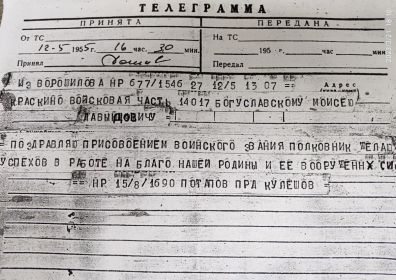 ТЕЛЕГРАММА
ПРИНЯТА ПЕРЕДАНА
От ТС На ТС
12-5 1955 г. 16 час. 30 мин. 195 г. час. мин.
Принял Передал
ИЗ ВОРОШИЛОВА НР 677/1546 27 12/5 13 07 = Адрес
КРАСКИНО ВОЙСКОВАЯ ЧАСТЬ 14017 БОГУСЛАВСКОМУ МОИСЕЮ
ДАВЫДОВИЧУ
= ПОЗДРАВЛЯЮ ПРИСВОЕНИЕМ ВОИНСКОГО ЗВАНИЯ ПОЛКОВНИК
УСПЕХОВ В РАБОТЕ НА БЛАГО НАШЕЙ РОДИНЫ И ЕЕ
== НР 15/8/1690 ПОТАПОВ ПРД КУЛЕШОВ =